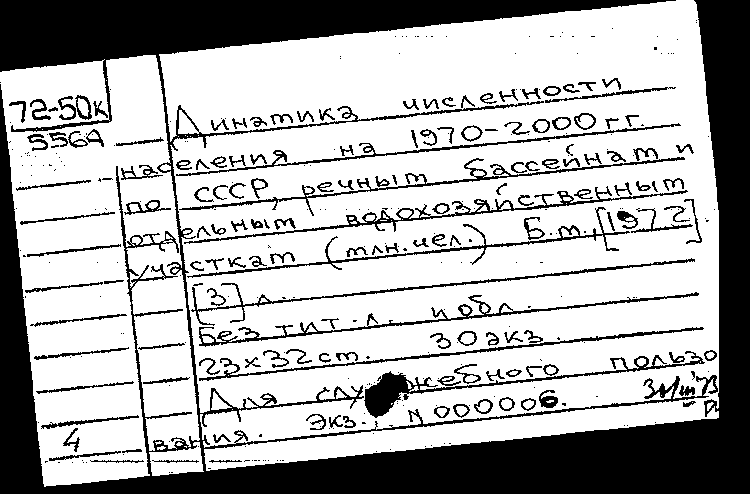 72-50к
556А
Динамика численности
населения на 1970-2000 гг.
по СССР, речным бассейнам и
отдельным водохозяйственным
участкам (млн.чел.) Б.м., [1972].
[3] л.
Без тит.л. и обл.
23×32 см. 30 экз.
Для служебного пользо
вания. Экз. N 000006.
4